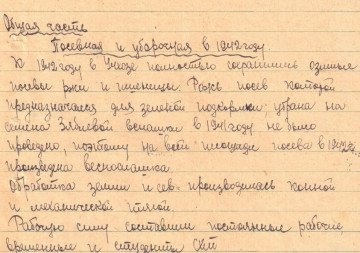 Общая часть
Посевная и уборочная в 1942 году.
К 1942 году в Учхозе полностью сохранились озимые
посевы ржи и пшеницы. Рожь посев которой
предназначался для зеленой подкормки, убрана на
семена. Зяблевой вспашки в 1941 году не было
проведено, поэтому на всей площади посева в 1942 г.
произведена весновспашка
Обработка земли и сев производилась конной
и механической тягой.
Рабочую силу составили постоянные рабочие,
временные и студенты СХИ